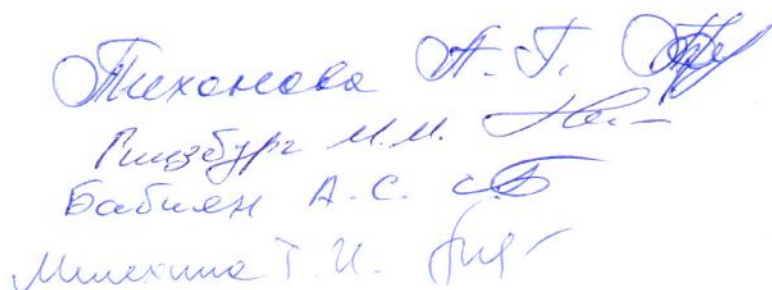 Тихонова А. Г.
Гинзбург М.М.
Бабиян А.С.
Милехина Т.И.